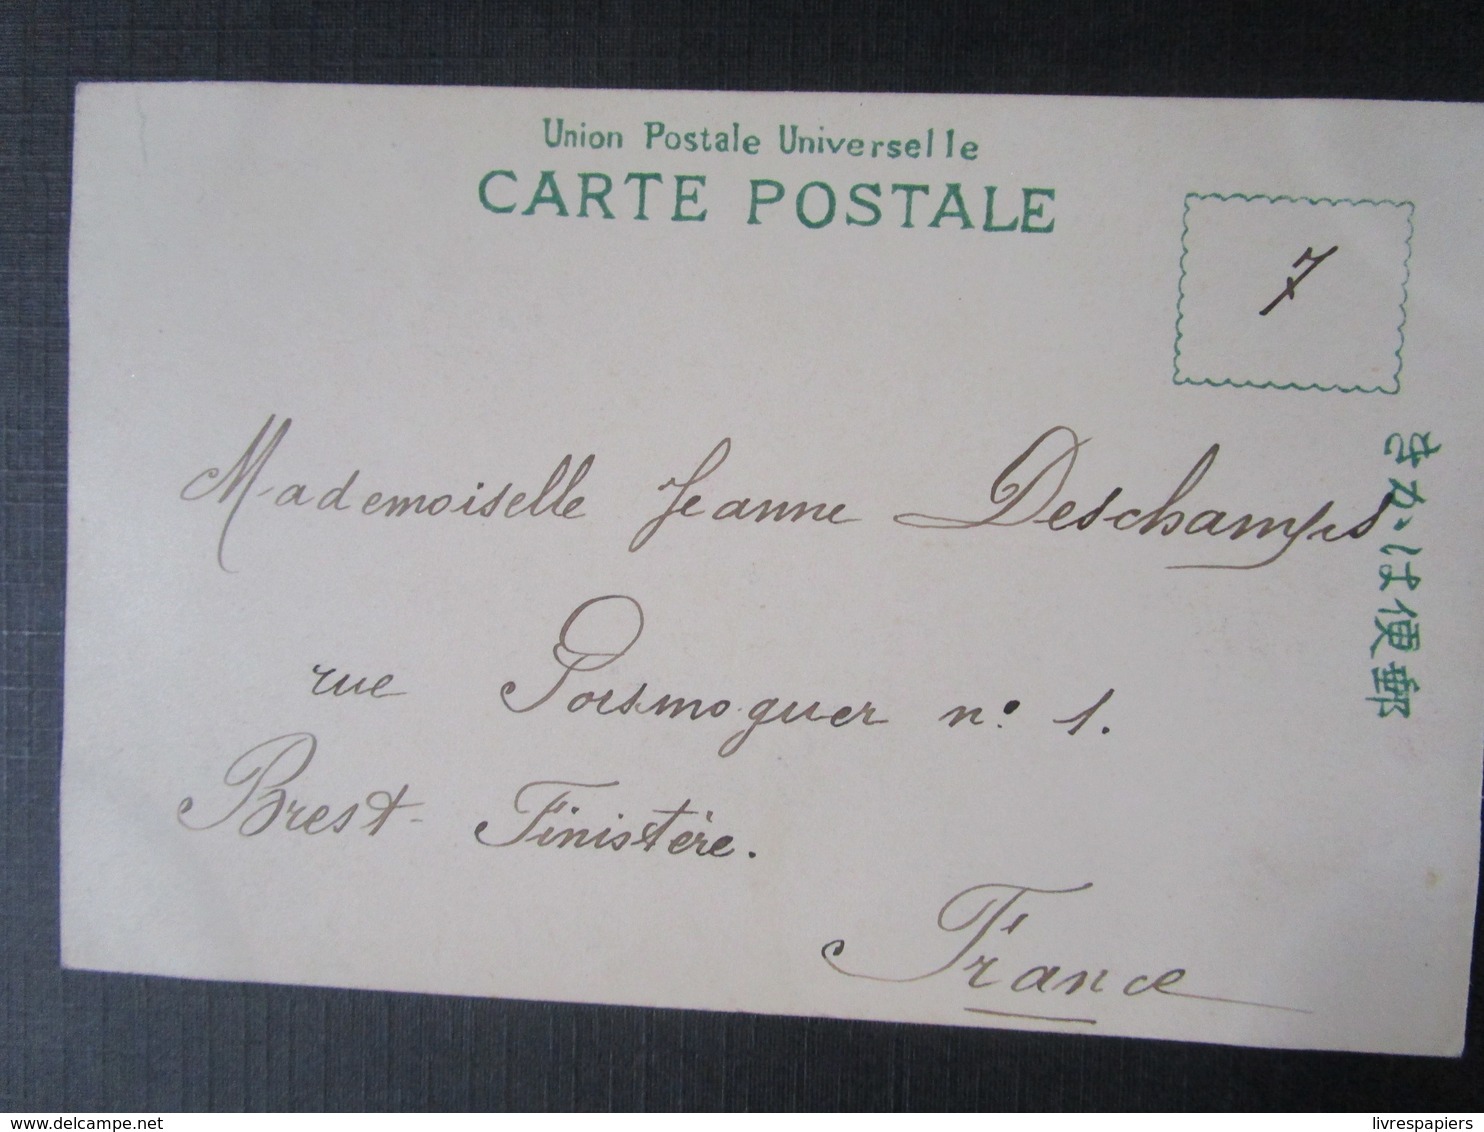 Union Postale Universelle
CARTE POSTALE
7
Mademoiselle Jeanne Deschamps
rue Porsmoguer n° 1.
Brest - Finistère.
France
きかは便郵
delcampe.net
livrespapiers